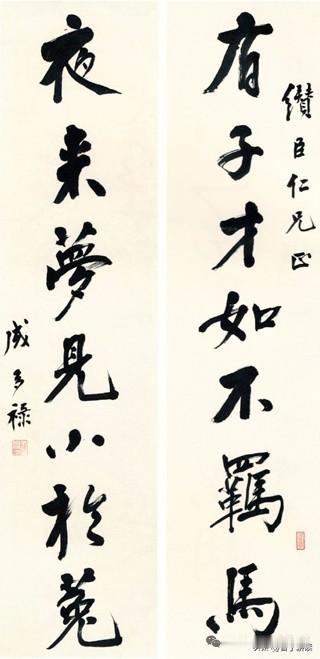 纘臣仁兄正
有子才如不羈馬
夜来夢見小於菟
成多禄